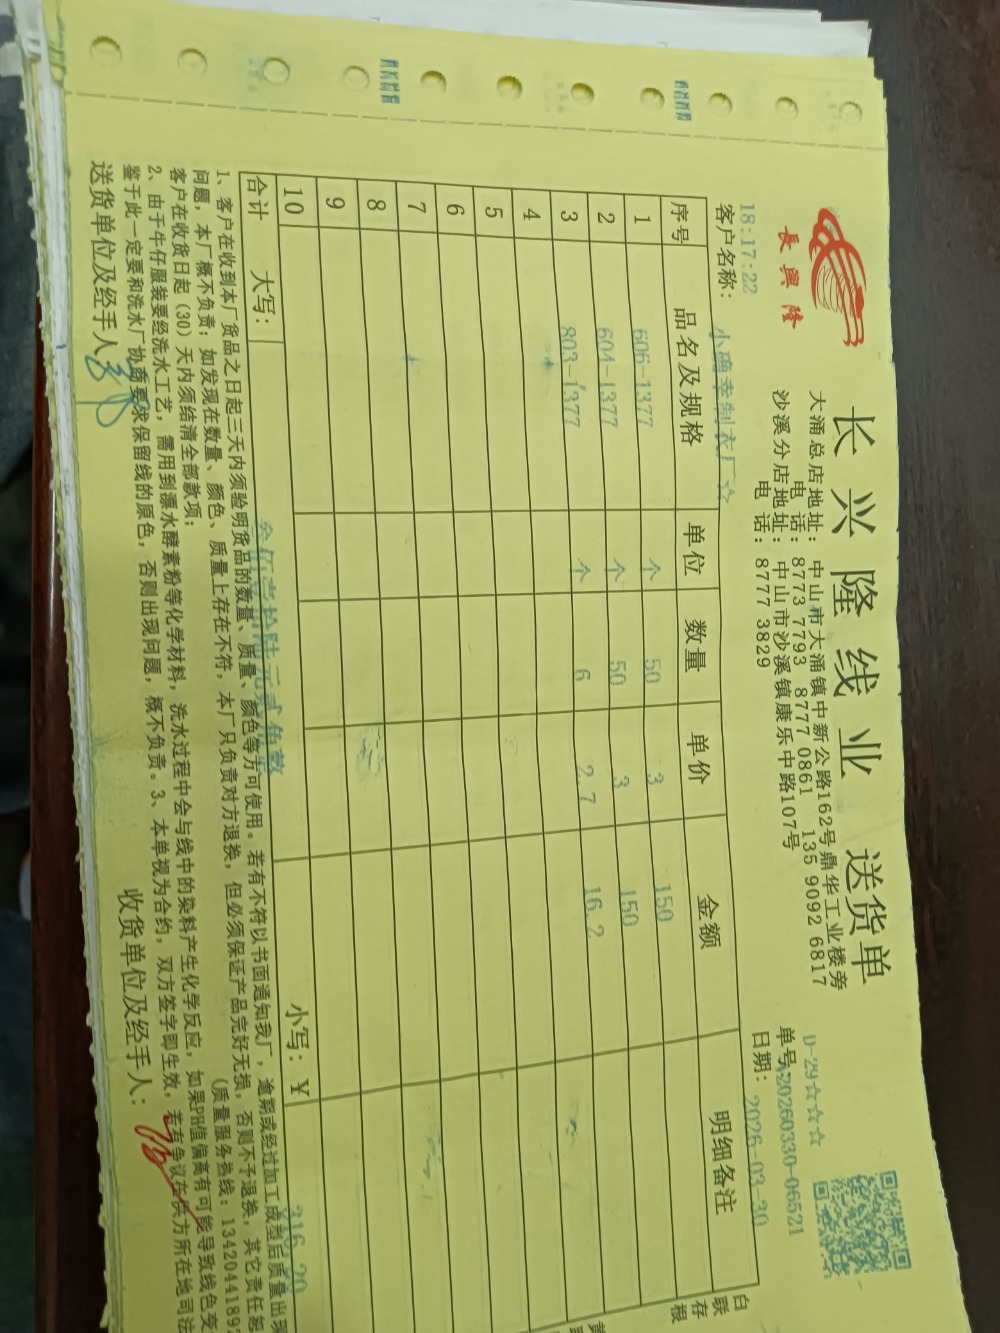 長興隆
长兴隆线业 送货单
大涌总店地址：中山市大涌镇中新公路162号鼎华工业楼旁
电 话：8773 7793 8777 0861 135 9092 6817
沙溪分店地址：中山市沙溪镇康乐中路107号
电 话：8777 3829
D-29☆☆☆
单号:20260330-06521
日期：2026-03-30
18:17:22
客户名称：小确幸制衣厂☆
序号 品名及规格 单位 数量 单价 金额 明细备注
1 606-1377 个 50 3 150
2 604-1377 个 50 3 150
3 803-1377 个 6 2.7 16.2
4
5
6
7
8
9
10
合计 大写：叁佰壹拾陆元贰角整 小写：￥ 316.20
白联存根
1、客户在收到本厂货品之日起三天内须验明货品的数量、质量、颜色等方可使用。若有不符以书面通知我厂，逾期或经过加工成型后质量出现
问题，本厂概不负责；如发现在数量、颜色、质量上存在不符，本厂只负责对方退换，但必须保证产品完好无损，否则不予退换，其它责任恕
客户在收货日起（30）天内须结清全部款项；（质量服务热线：1342044189
2、由于牛仔服装要经洗水工艺，需用到漂水酵素粉等化学材料，洗水过程中会与线中的染料产生化学反应，如果PH值偏高有可能导致线色变
鉴于此一定要和洗水厂协商要求保留线的原色，否则出现问题，概不负责。3、本单视为合约，双方签字即生效，若有争议在供方所在地司法
送货单位及经手人： 收货单位及经手人：